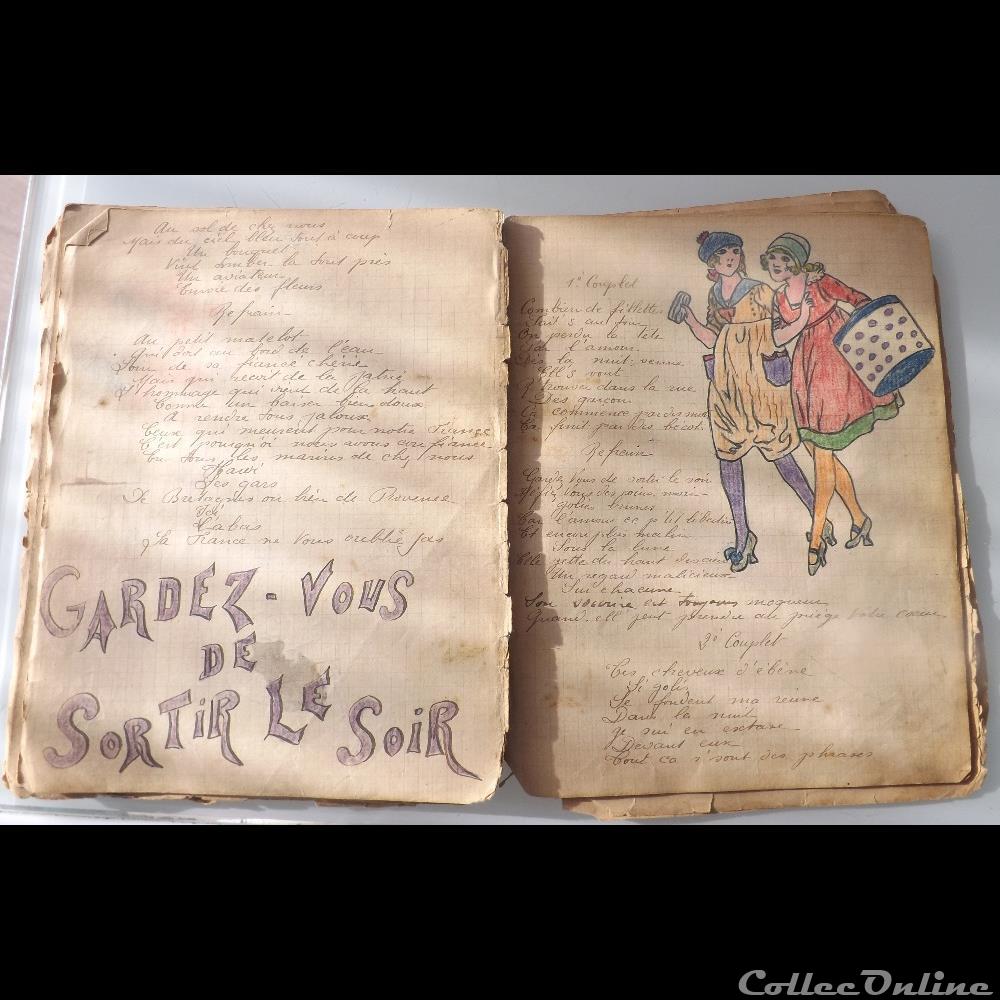 Au sol de chez nous
Mais du ciel bleu tout à coup
Un bouquet
Vint tomber la tout près
Un aviateur
Envoie des fleurs
Refrain
Au petit matelot
Qui dort au bord de l'eau
Loin de sa france chérie
Mais qui reçoit de la patrie
L'hommage qui vient de la haut
Comme un baiser bien doux
A rendre tous jaloux
Ceux qui meurent pour notre France
C'est pourquoi nous avons confiance
En tous les marins de chez nous
Hardi
Les gars
De Bretagne ou bien de Provence
Ici
Labas
La France ne vous oublie pas
GARDEZ-VOUS
DE
SORTIR LE SOIR
1e Couplet
Combien de fillettes
On perdu la tête
de l'amour
Dès la nuit venue
Ell's vont
trouver dans la rue
Des garçons
Ça commence par des mots
Ça finit par des bécots
Refrain
Gardez vous de sortir le soir
Jolies brunes
Car l'amour ce p'tit libertin
Est encor plus malin
Sous la lune
Elle jette du haut des cieux
Un regard malicieux
Sur chacune
Son sourire est toujours moqueur
Quand ell' peut prendre au piège votre coeur
2e Couplet
Tes cheveux d'ébène
Si jolis
Se fondent ma reine
Dans la nuit
Je suis en extase
Devant eux
Tout ça s'sont des phrases
CollecOnline